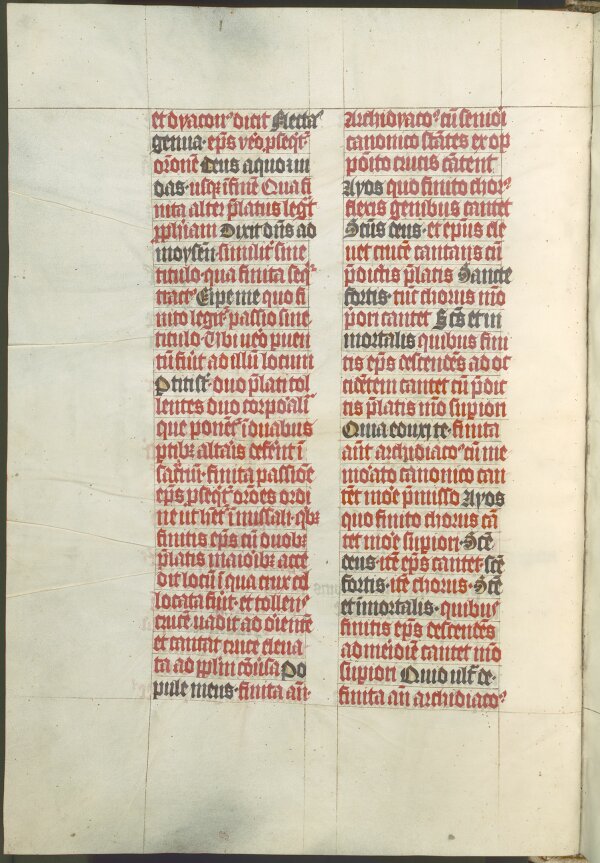 et dyacon⁹ dicit Flecta⁹
genua· ep̄s v̄o p̄seq̄t᷑
or̄one᷑ Deus a quo iu
das· usq̄ ī fine᷑ Qua fi
nita alter p̄latus leḡt
ꝓph̄iam Dixit dn̄s ad
moysen· similit᷑ sine
titulo· qua finita seq᷑
tract⁹ Eripe me quo fi
nito legit᷑ passio sine
titulo· Et ubi ue᷑o puen
tū fuit ad illū locum
Ptiti st᷑· duo p̄lati tol
lentes duo corpo᷑alı᷑
que ponē᷑ ī duabus
ptib᷑ altais defēnt ī
sac᷑iū· finita passiōe
ep̄s p̄seq̄t᷑ or̄ōes ordi
ne ut het᷑ ī missali· q᷑b᷑
finitis ep̄s cū duob᷑
p̄latis maio᷑ib᷑ acce
dit locū ī qua crux col
locata fuit· et tollens
crucē uadit ad o᷑ientē
et cantat cruce eleua
ta ad pp̄lm cōu᷑sa Po
pule meus· finita an̄·
Archidyaco⁹ cū senio᷑i
canonico stātes ex op
posito crucis cātent
Ayos quo finito chor⁹
flexis genibus cantet
Sc̄us deus· et ep̄us ele
uet crucē cantans cū
p̄dictis p̄latis Sancte
fortis· tūc chorus mō
pori cantet Sc̄s et in
mortalis quibus fini
tis ep̄s descendēs ad oc
cidētem cantet cū p̄dic
tis p̄latis mō supiori
Quia eduxi te· finita
an̄t archidiaco⁹ cū me
mo᷑ato canonico can
tēt mo᷑e p̄misso Ayos
quo finito chorus cā
tet mo᷑e supiori· Sc̄e
deus· itē ep̄s cantet sc̄e
fortis· itē chorus· Sc̄e
et īmortalis· quibus
finitis ep̄s descendēs
ad meidiē cantet mō
supiori Quid ult᷑ de·
finita an̄ archidiaco⁹